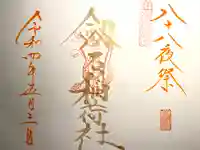 八十八夜祭
石稲荷社
令和四年五月二日